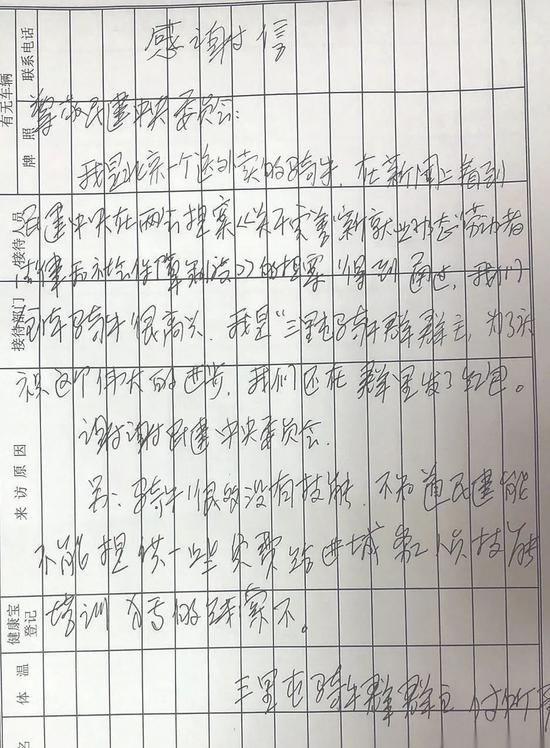 感谢信
尊敬民建中央委员会：
我是北京一个送外卖的骑手，在新闻上看到
民建中央在两会提案《关于完善"新就业形态"劳动者
法律与社会保障制度》的提案"得到通过，我们
骑手很高兴。我是"三里屯骑手群群主，为了庆
祝这个伟大的进步，我们还在群里发了红包。
谢谢谢民建中央委员会
另：骑手很多没有技能，不知道民建能
不能提供一些免费给进城务工人员技能
培训
三里屯骑手群群主
有无车辆
联系电话
牌照
接待人员
接待部门
来访原因
健康宝
登记
体温
名